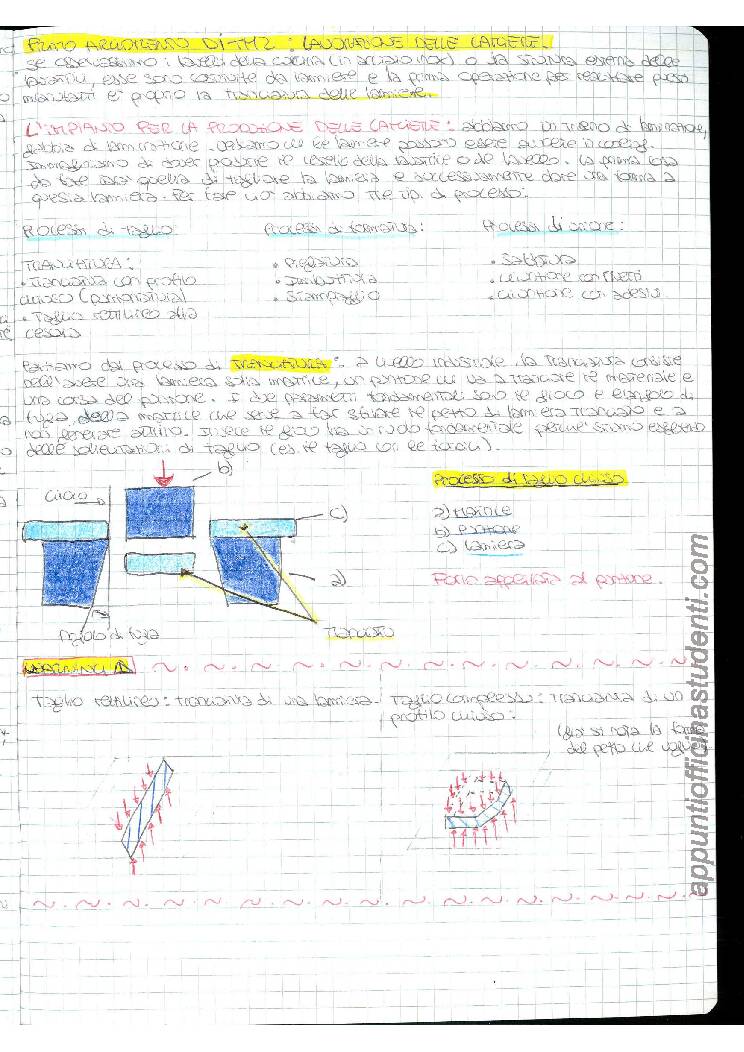 PRIMO ARGOMENTO DI TM2: LAVORAZIONE DELLE LAMIERE.
Se osservassimo i lavelli della cucina (in acciaio inox) o la struttura esterna delle
lavatrici, esse sono costituite da lamiere e la prima operazione per realizzare questi
manufatti è proprio la tranciatura delle lamiere.
L'IMPIANTO PER LA PRODUZIONE DELLE LAMIERE: abbiamo un treno di laminazione,
gabbia di laminazione. Vediamo che le lamiere possono essere avvolte in coils.
Immaginiamo di dover produrre il cestello della lavatrice o del lavello. La prima cosa
da fare sarà quella di tagliare la lamiera e successivamente dare una forma a
questa lamiera. Per fare ciò abbiamo tre tipi di processo:
Processi di taglio Processi di formatura: Processi di unione:
TRANCIATURA:
• Tranciatura con profilo
chiuso (punzonatura)
• Taglio rettilineo alla
cesoia
• Piegatura
• Imbutitura
• Stampaggio
• Saldatura
• Giunzione con
• Giunzione con adesivi
Partiamo dal processo di TRANCIATURA: a livello industriale la tranciatura consiste
nell'avere una lamiera sulla matrice, un punzone che va a tranciare il materiale e
una corsa del punzone. I due parametri fondamentali sono il gioco e l'angolo di
fuga della matrice che serve a far sfilare il pezzo di lamiera tranciato e a
non generare attrito. Invece il gioco ha un ruolo fondamentale perché siamo
delle sollecitazioni di taglio (es. il taglio con le forbici).
Gioco
b)
c)
a)
Angolo di fuga
Tranciato
Processo di taglio chiuso
a) Matrice
b) Punzone
c) Lamiera
Forza applicata al punzone.
WARNING
Taglio rettilineo: tranciatura di una lamiera.
Taglio complesso: tranciatura di un
profilo chiuso:
Qui si nota la forma
del pezzo che
appuntiofficinastudenti.com